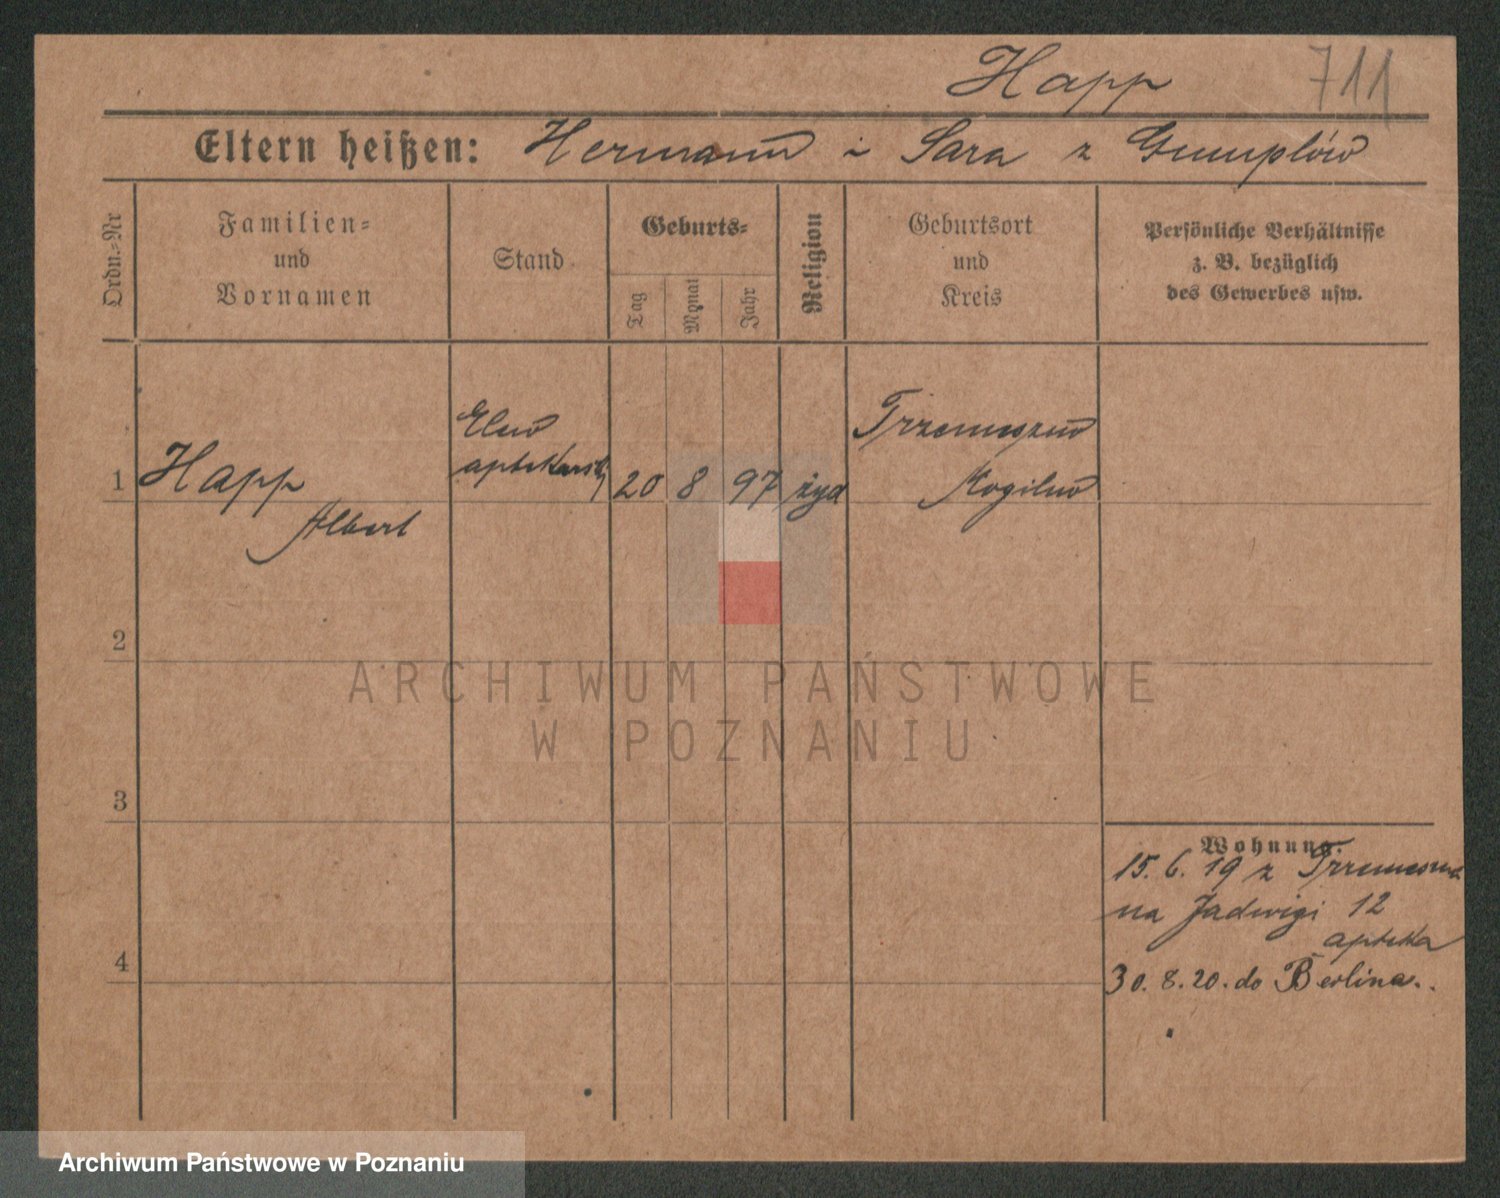 Happ 711
Eltern heißen: Hermann i Sara z Gumplów
Ordn.-Nr
Familien-
und
Vornamen
Stand
Geburts-
Tag
Monat
Jahr
Religion
Geburtsort
und
Kreis
Persönliche Verhältnisse
z. B. bezüglich
des Gewerbes usw.
1 Happ
Albert
Elew
aptekarski
20 8 97 żyd
Trzemeszno
Mogilno
2
3
4
Wohnung.
15. 6. 19 z Trzemeszna
na Jadwigi 12
apteka
30. 8. 20. do Berlina..
ARCHIWUM PAŃSTWOWE
W POZNANIU
Archiwum Państwowe w Poznaniu